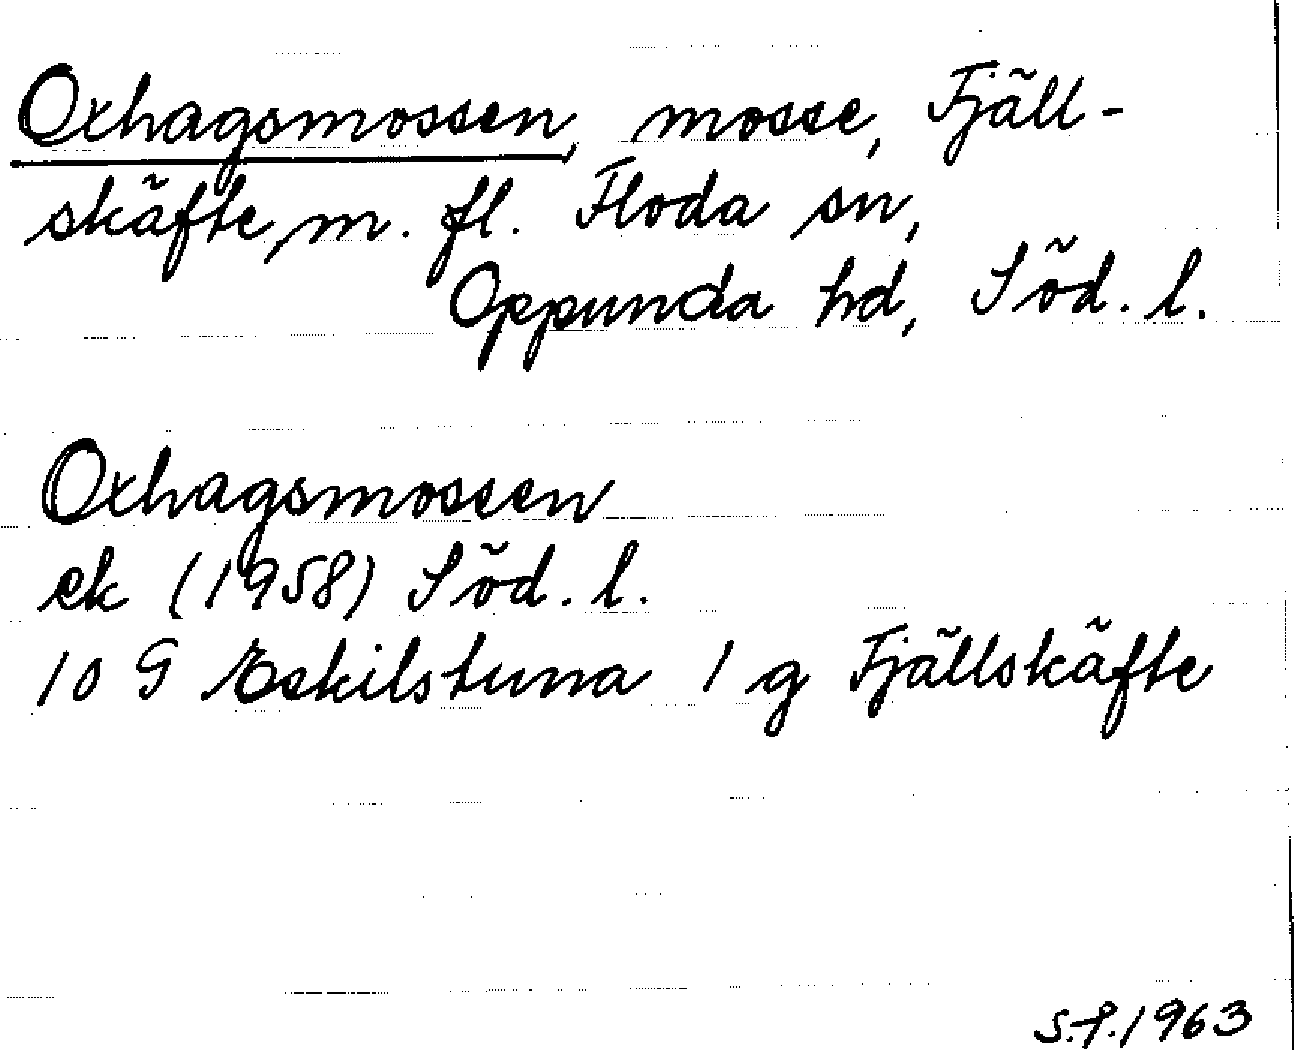 Oxhagsmossen, mosse, Fjäll-
skäfte, m. fl. Floda sn,
Oppunda hd, Söd. l.
Oxhagsmossen
ek (1958) Söd. l.
10 G Eskilstuna 1 g Fjällskäfte
S.P. 1963